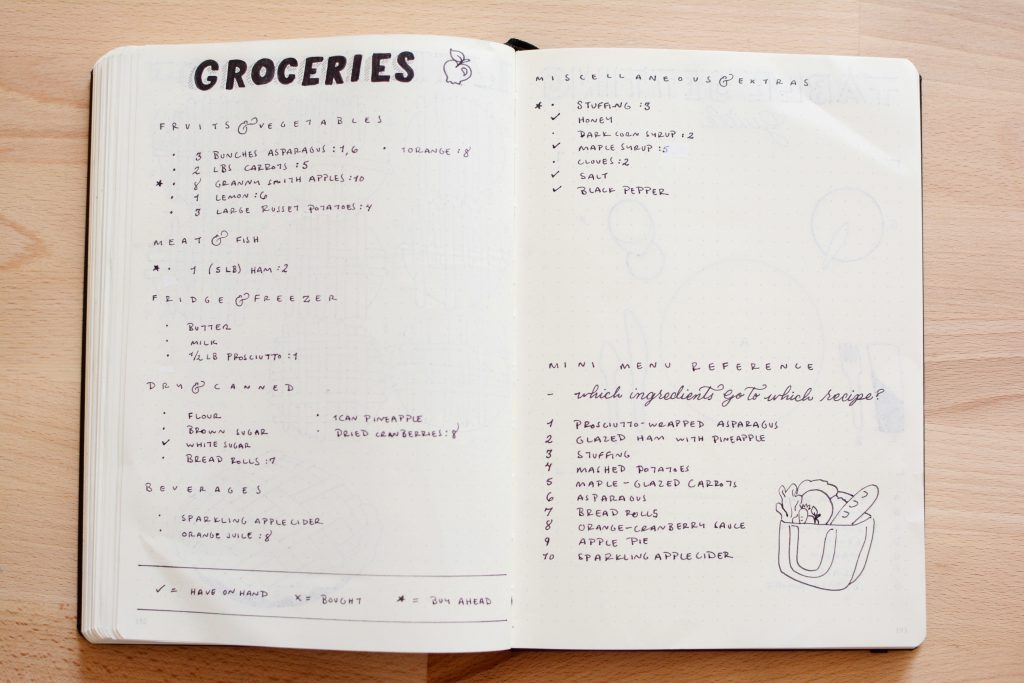 GROCERIES
FRUITS & VEGETABLES
• 3 BUNCHES ASPARAGUS : 1,6 • 1 ORANGE : 8
• 2 LBS CARROTS : 5
* • 8 GRANNY SMITH APPLES : 10
• 1 LEMON : 6
• 3 LARGE RUSSET POTATOES : 4
MEAT & FISH
* • 1 (5 LB) HAM : 2
FRIDGE & FREEZER
• BUTTER
• MILK
• 1/2 LB PROSCIUTTO : 1
DRY & CANNED
• FLOUR • 1 CAN PINEAPPLE
• BROWN SUGAR • DRIED CRANBERRIES : 8
✓ WHITE SUGAR
• BREAD ROLLS : 7
BEVERAGES
• SPARKLING APPLE CIDER
• ORANGE JUICE : 8
✓ = HAVE ON HAND X = BOUGHT * = BUY AHEAD
192
MISCELLANEOUS & EXTRAS
* • STUFFING : 3
✓ HONEY
• DARK CORN SYRUP : 2
✓ MAPLE SYRUP : 5
• CLOVES : 2
✓ SALT
✓ BLACK PEPPER
MINI MENU REFERENCE
- which ingredients go to which recipe?
1 PROSCIUTTO-WRAPPED ASPARAGUS
2 GLAZED HAM WITH PINEAPPLE
3 STUFFING
4 MASHED POTATOES
5 MAPLE-GLAZED CARROTS
6 ASPARAGUS
7 BREAD ROLLS
8 ORANGE-CRANBERRY SAUCE
9 APPLE PIE
10 SPARKLING APPLE CIDER
193